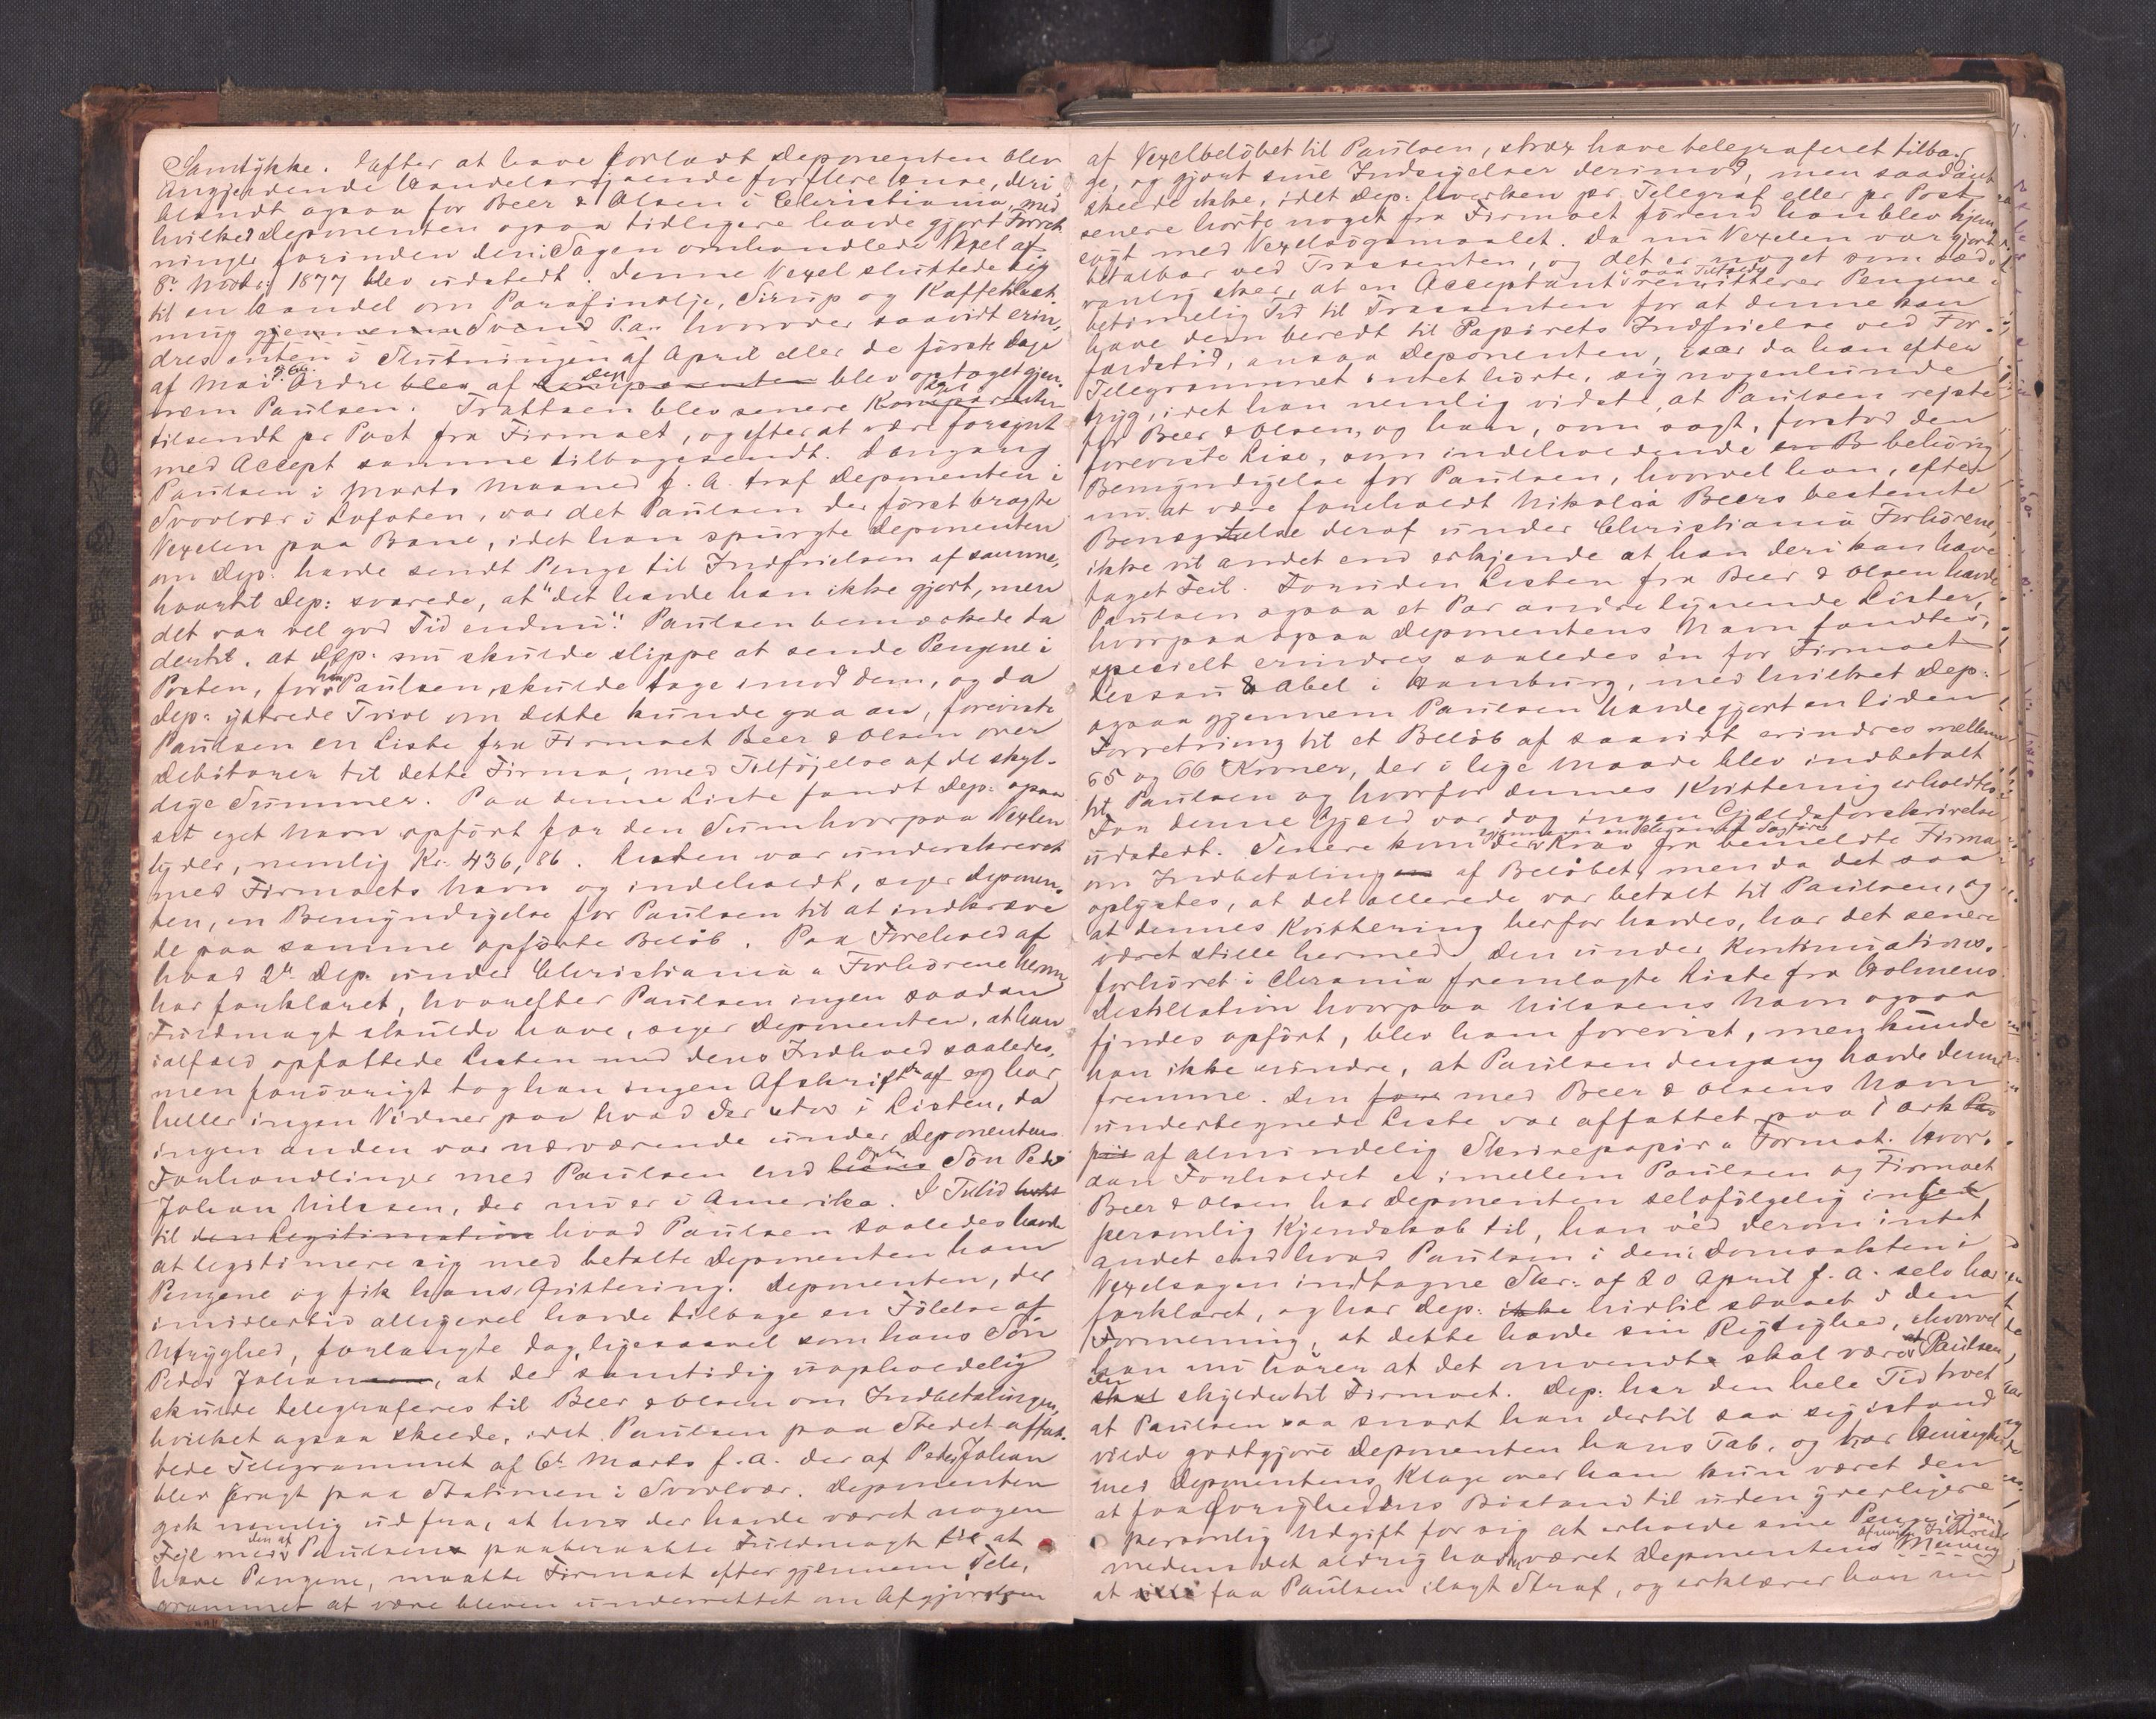 Samtykke. Efter at have forladt Deponenten blev
Angjældende Handelsrejsende for flere Huse, deri
blandt ogsaa for Beer & Olsen i Christiania, med
hvilket Deponenten ogsaa tidligere havde gjort Forret-
ninger forinden den i Sagen omhandlede Vexel af
8de Novbr: 1877 blev udstedt. Denne Vexel sluttede sig
til en Handel om Parafinolje, Sirup og Kaffe
dres enten i Slutningen af April eller de første Dage
af Mai Ordre blev af den blev optaget gjen-
nem Paulsen. Tratten blev senere
tilsendt pr Post fra Firmaet, og efter at være forsynt
med Accept samme tilbagesendt. Dengang
Paulsen i Marts Maaned f. A. traf Deponenten i
Svolvær i Lofoten, var det Paulsen der først bragte
Vexelen paa Bane, idet han spurgte Deponenten
om Dep: havde sendt Penge til Indfrielsen af samme,
hvortil Dep: svarede, at "det havde han ikke gjort, men
det var vel god Tid endnu". Paulsen bemærkede da
dertil, at Dep: nu skulde slippe at sende Pengene i
Posten, for han Paulsen, skulde tage imod dem, og da
Dep: yttrede Tvivl om dette kunde gaa an, foreviste
Paulsen en Liste fra Firmaet Beer & Olsen over
Debitorer til dette Firma, med Tilføjelse af de skyl-
dige Summer. Paa denne Liste fandt Dep: ogsaa
sit eget Navn opført for den Sum hvorpaa Vexlen
lyder, nemlig Kr. 436,86. Listen var underskrevet
med Firmaets Navn og indeholdt, siger Deponen-
ten, en Bemyndigelse for Paulsen til at indkræve
de paa samme opførte Beløb. Paa Forehold af
hvad 2de Dep: under Christiania Forhørene
har forklaret, hvorefter Paulsen ingen saadan
Fuldmagt skulde have, siger Deponenten, at han
ialfald opfattede Listen med dens Indhold saaledes,
men forøvrigt tog han ingen Afskrift af og har
heller ingen Vidner paa hvad der stod i Listen, da
ingen anden var nærværende under Deponentens
Forhandlinger med Paulsen end Søn Peder
Johan Nilssen, der nu er i Amerika. I Tillid
til den Legitimation hvad Paulsen saaledes havde
at legitimere sig med betalte Deponenten ham
Pengene og fik hans Qvittering. Deponenten, der
imidlertid alligevel havde tilbage en Følelse af
Utryghed, forlangte dog, ligesaavel som hans Søn
Peder Johan, at der samtidig uopholdelig
skulde telegraferes til Beer & Olsen om Indbetalingen,
hvilket ogsaa skede, idet Paulsen paa Stedet affat-
tede Telegrammet af 6te Marts f. A. der af Peder Johan
blev bragt paa Stationen i Svolvær. Deponenten
gik nemlig ud fra, at hvis der havde været nogen
Fejl med den af Paulsen paaberaabte Fuldmagt til at
have Pengene, maatte Firmaet efter gjennem Tele-
grammet at være bleven underrettet om Afgjørelsen
af Vexelbeløbet til Paulsen, strax have telegraferet tilba-
ge, og gjort sine Indsigelser derimod, men saadant
skede ikke, idet Dep: hverken pr. Telegraf eller pr Post
senere hørte noget fra Firmaet førend han blev hjem-
søgt med Vexelsøgsmaalet. Da nu Vexelen var gjort
betalbar ved Trassenten, og det er noget som sæd-
vanlig sker, at en Acceptant i saa Tilfælde remitterer Pengene i
betimelig Tid til Trassenten for at denne kan
have dem beredt til Papirets Indfrielse ved For-
faldstid, ansaa Deponenten, især da han efter
Telegrammet intet hørte, sig nogenlunde
tryg, idet han nemlig vidste, at Paulsen rejste
for Beer & Olsen, og han, som sagt, forstod den
foreviste Liste, som indeholdende behørig
Bemyndigelse for Paulsen, hvorvel han, efter
nu at være foreholdt Nikolai Beers bestemte
Benægtelse deraf under Christiania Forhørene,
ikke vil andet end erkjende at han deri kan have
taget Feil. Foruden Listen fra Beer & Olsen havde
Paulsen ogsaa et Par andre lignende Lister,
hvorpaa ogsaa Deponentens Navn fandtes,
specielt erindres saaledes én for Firmaet
Dessau & Abel i Hamburg, med hvilket Dep:
ogsaa gjennem Paulsen havde gjort en liden
Forretning til et Beløb af saavidt erindres mellem
65 og 66 Kroner, der i lige Maade blev indbetalt
til Paulsen og hvorfor dennes Kvittering erholdtes.
For denne Gjæld var dog ingen Gjældsforskrivelse
udstedt. Senere kom der Krav fra bemeldte Firma
om Indbetaling af Beløbet, men da det saa
oplystes, at det allerede var betalt til Paulsen, og
at dennes Kvittering herfor havdes, har det senere
været stille hermed. Den under Kontinuations-
forhøret i Chrania fremlagte Liste fra Holmens
Destillation hvorpaa Nilssens Navn ogsaa
findes opført, blev ham forevist, men kunde
han ikke erindre, at Paulsen dengang havde denne
fremme. Den med Beer & Olsens Navn
undertegnede Liste var affattet paa 1 Ark
af almindelig Skrivepapir Format. Hvor-
dan Forholdet er imellem Paulsen og Firmaet
Beer & Olsen har Deponenten selvfølgelig intet
personlig Kjendskab til, han véd derom intet
andet end hvad Paulsen i den i Domsakten i
Vexelsagen indtagne Skr: af 20 April f. A. selv har
forklaret, og har Dep: ikke hidtil staaet i den
Formening, at dette havde sin Rigtighed, ihvorvel
han nu hører at det omvendte skal være at Paulsen
skylder til Firmaet. Dep: har den hele Tid troet
at Paulsen saa snart han dertil saa sig istand
vilde godtgjøre Deponenten hans Tab, og har Hensigten
med Deponentens Klage over ham kun været den
at faa Øvrighedens Bistand til uden yderligere
personlig Udgift for sig at erholde sine Penge igjen,
medens det aldrig har været Deponentens Mening
at faa Paulsen ilagt Straf, og erklærer han nu